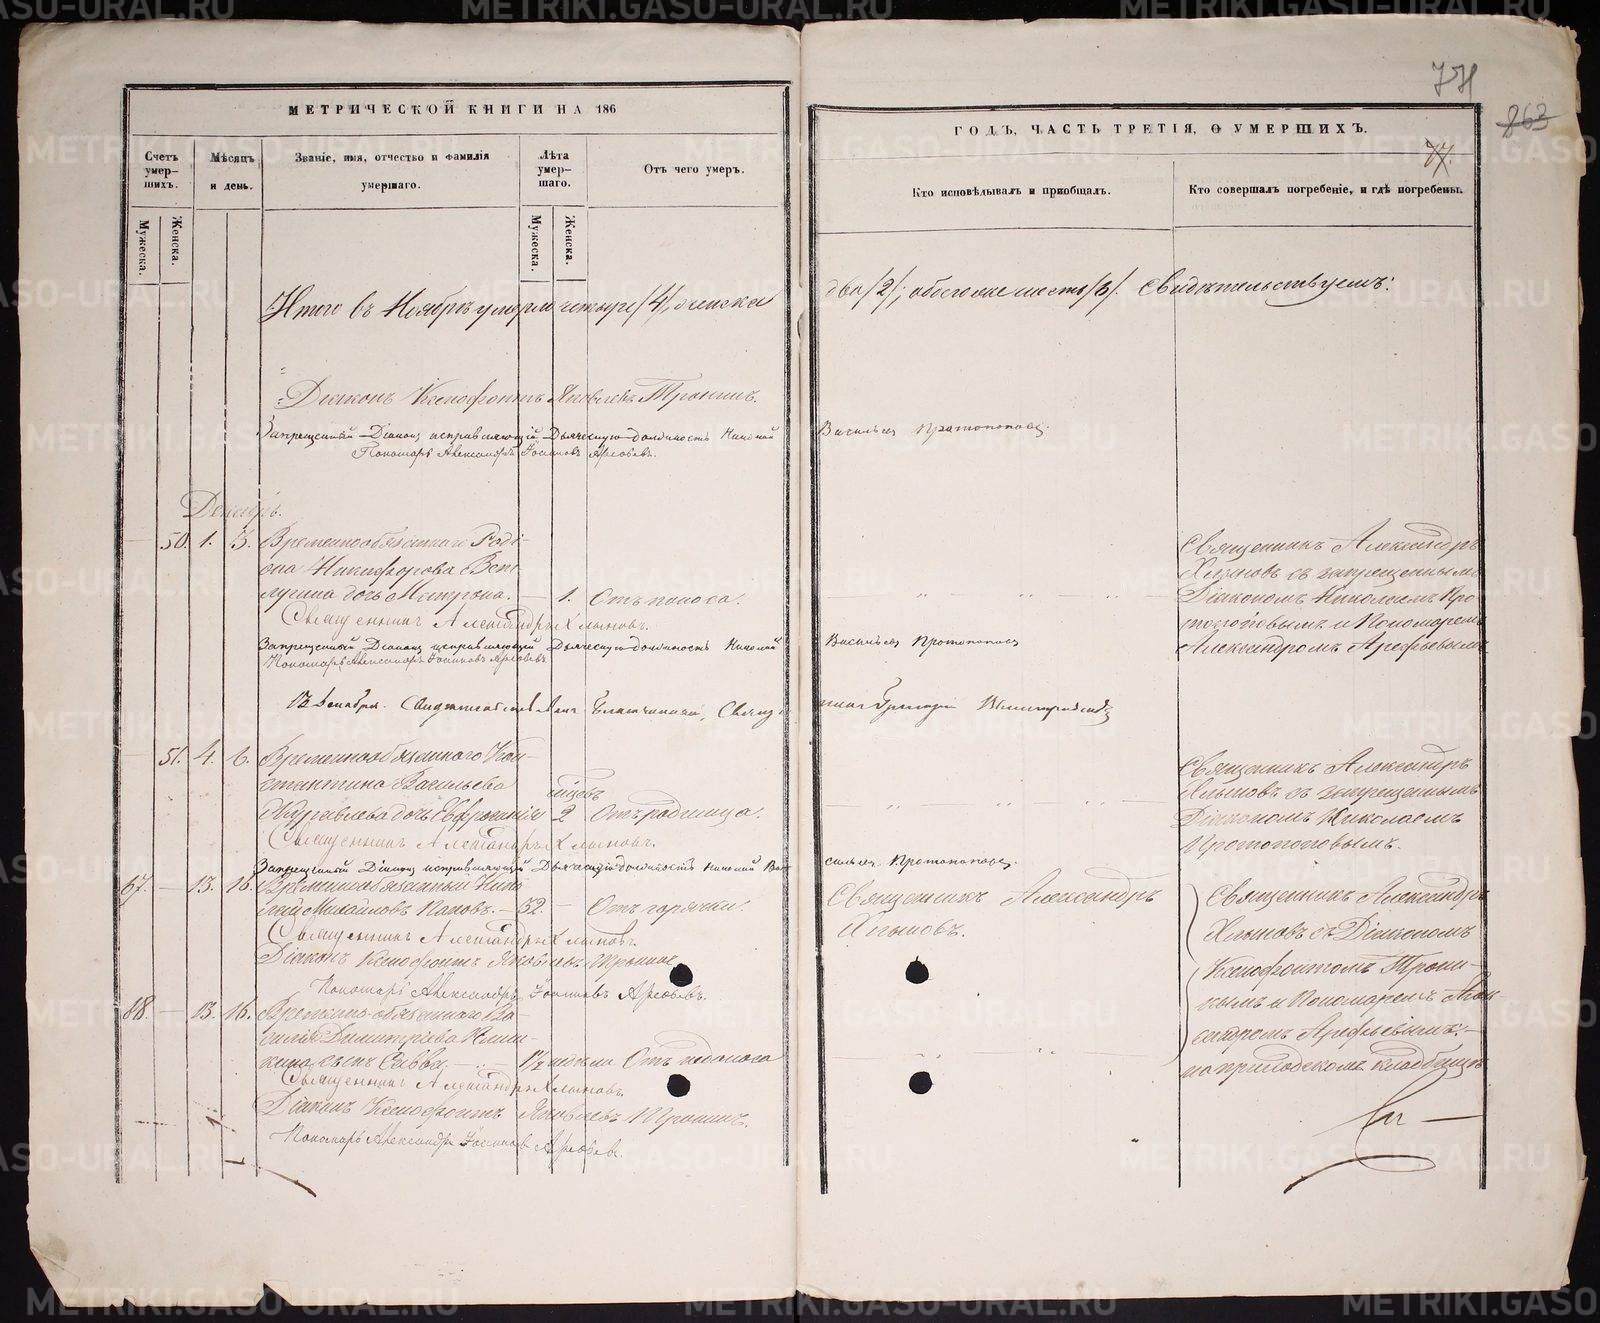 МЕТРИЧЕСКОЙ КНИГИ НА 186
Счетъ умер-шихъ.
Мѣсяцъ и день.
Званіе, имя, отчество и фамилія умершаго.
Лѣта умер-шаго.
Отъ чего умеръ.
Мужеска.
Женска.
Мужеска.
Женска.
Итого въ Ноябрѣ умерло четыре /4/, женска
Діаконъ Ксенофонтъ Яковлевъ Тронинъ.
Запрещенный Діаконъ исправляющій Дьяческую должность Николай
Пономарь Александръ Іоанновъ Арефьевъ.
Декабрь.
50. 1. 3. Временнообязаннаго Роді-
она Никифорова
дочь Матрона. — 1. Отъ поноса.
Священникъ Александръ Хлыновъ.
Запрещенный Діаконъ исправляющій Дьяческую должность Николай
Пономарь Александръ Іоанновъ Арефьевъ
Декабря. Свидѣтельствовалъ Благочинный, Свящ
51. 4. 6. Временнообязаннаго Кон-
стантина Васильева
дочь Евфросинія 2 Отъ родимца.
Священникъ Александръ Хлыновъ.
Запрещенный Діаконъ исправляющій Дьяческую должность Николай Ва-
67. — 13. 16. Временнообязанный Нико-
лай Михайловъ Поповъ. — 52. — Отъ горячки.
Священникъ Александръ Хлыновъ.
Діаконъ Ксенофонтъ Яковлевъ Тронинъ
Пономарь Александръ Іоанновъ Арефьевъ.
68. — 13. 16. Временно-обязаннаго Ва-
силія Димитріева
сынъ Савва. — 1½ недѣли Отъ
Священникъ Александръ Хлыновъ.
Діаконъ Ксенофонтъ Яковлевъ Тронинъ.
Пономарь Александръ Іоанновъ Арефьевъ.
863
77.
ГОДЪ, ЧАСТЬ ТРЕТІЯ, О УМЕРШИХЪ.
Кто исповѣдывалъ и пріобщалъ.
Кто совершалъ погребеніе, и гдѣ погребены.
два /2/, обоего же шесть /6/. Свидѣтельствуемъ:
Васильевъ Протопоповъ.
Священникъ Александръ
Хлыновъ съ запрещеннымъ
Діакономъ Николаемъ Про-
топоповымъ и Пономаремъ
Александромъ Арефьевымъ
Васильевъ Протопоповъ
Григорій
Священникъ Александръ
Хлыновъ съ запрещеннымъ
Діакономъ Николаемъ
Протопоповымъ.
сильевъ Протопоповъ.
Священникъ Александръ
Хлыновъ.
Священникъ Александръ
Хлыновъ съ Діакономъ
Ксенофонтомъ Трони-
нымъ и Пономаремъ Алек-
сандромъ Арефьевымъ.—
на приходскомъ кладбищѣ
METRIKI.GASO-URAL.RU